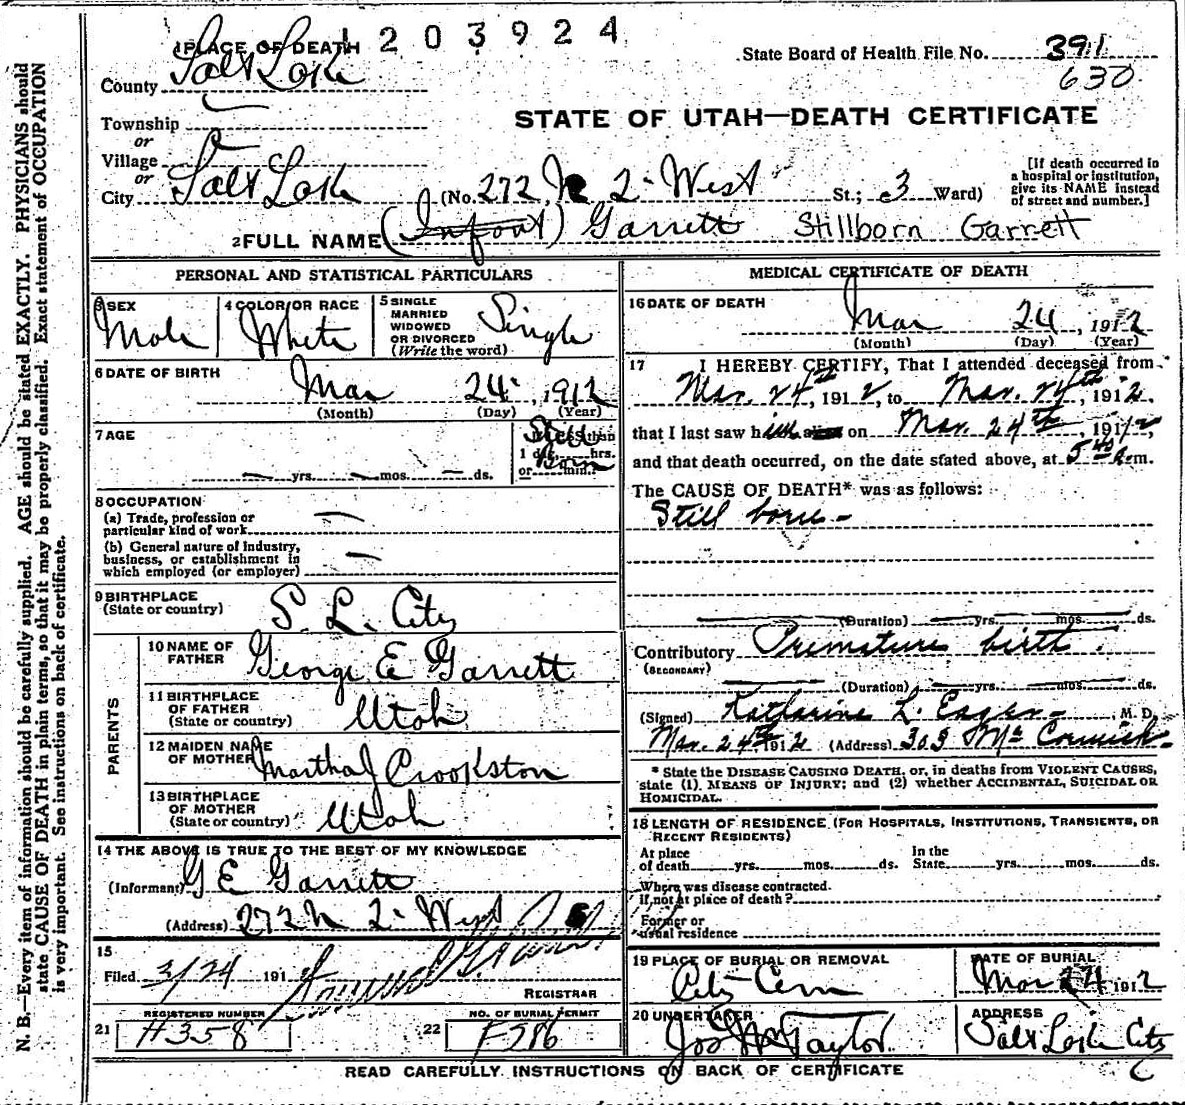 1203924
1 PLACE OF DEATH
State Board of Health File No. 391
630
County Salt Lake
STATE OF UTAH—DEATH CERTIFICATE
Township
or
Village
or
City Salt Lake (No. 272 N 2 West St.; 3 Ward)
[If death occurred in a hospital or institution, give its NAME instead of street and number.]
2 FULL NAME (Infant) Garrett Stillborn Garrett
PERSONAL AND STATISTICAL PARTICULARS
3 SEX Male
4 COLOR OR RACE White
5 SINGLE MARRIED WIDOWED OR DIVORCED (Write the word) Single
6 DATE OF BIRTH Mar 24 1912
(Month) (Day) (Year)
7 AGE
Still Born
If LESS than
1 day hrs.
yrs. mos. ds. or min.?
8 OCCUPATION
(a) Trade, profession or
particular kind of work
(b) General nature of industry,
business, or establishment in
which employed (or employer)
9 BIRTHPLACE
(State or country) S. L. City
PARENTS
10 NAME OF FATHER George E Garrett
11 BIRTHPLACE OF FATHER
(State or country) Utah
12 MAIDEN NAME OF MOTHER Martha J Crookston
13 BIRTHPLACE OF MOTHER
(State or country) Utah
14 THE ABOVE IS TRUE TO THE BEST OF MY KNOWLEDGE
(Informant) G E Garrett
(Address) 272 N 2 West
15
Filed 3/24 191
REGISTRAR
REGISTERED NUMBER
21 H358
NO. OF BURIAL PERMIT
22 F286
MEDICAL CERTIFICATE OF DEATH
16 DATE OF DEATH
Mar 24, 1912
(Month) (Day) (Year)
17 I HEREBY CERTIFY, That I attended deceased from
Mar. 24th, 1912, to Mar. 24th, 1912.
that I last saw him alive on Mar. 24th, 1912,
and that death occurred, on the date stated above, at 5 a.m.
The CAUSE OF DEATH* was as follows:
Still born-
(Duration) yrs. mos. ds.
Contributory Premature birth.
(SECONDARY)
(Duration) yrs. mos. ds.
(Signed) Katharine L. Eager M. D.
Mar. 24th 1912 (Address) 303 McCornick
* State the DISEASE CAUSING DEATH, or, in deaths from VIOLENT CAUSES,
state (1) MEANS OF INJURY; and (2) whether ACCIDENTAL, SUICIDAL OR
HOMICIDAL.
18 LENGTH OF RESIDENCE (FOR HOSPITALS, INSTITUTIONS, TRANSIENTS, OR
RECENT RESIDENTS)
At place
of death yrs. mos. ds. In the State yrs. mos. ds.
Where was disease contracted.
if not at place of death?
Former or
usual residence
19 PLACE OF BURIAL OR REMOVAL
City Cem
DATE OF BURIAL
Mar 24 1912
20 UNDERTAKER
Jos Wm Taylor.
ADDRESS
Salt Lake City
READ CAREFULLY INSTRUCTIONS ON BACK OF CERTIFICATE
N. B.—Every item of information should be carefully supplied. AGE should be stated EXACTLY. PHYSICIANS should
state CAUSE OF DEATH in plain terms, so that it may be properly classified. Exact statement of OCCUPATION
is very important. See instructions on back of certificate.